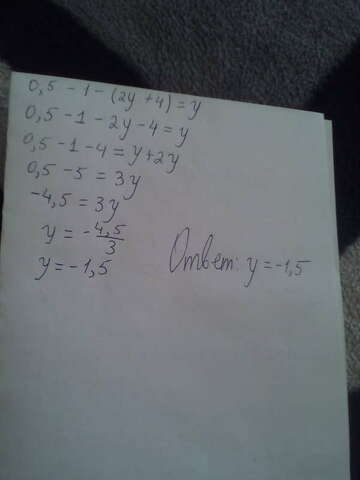 0,5 - 1 - (2y + 4) = y
0,5 - 1 - 2y - 4 = y
0,5 - 1 - 4 = y + 2y
0,5 - 5 = 3y
-4,5 = 3y
y = - 4,5/3
y = -1,5
Ответ: y = -1,5